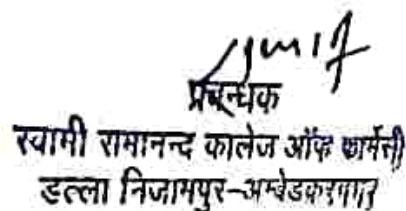 प्रबन्धक
स्वामी रामानन्द कालेज ऑफ फार्मेसी
डल्ला निजामपुर-अम्बेडकरनगर